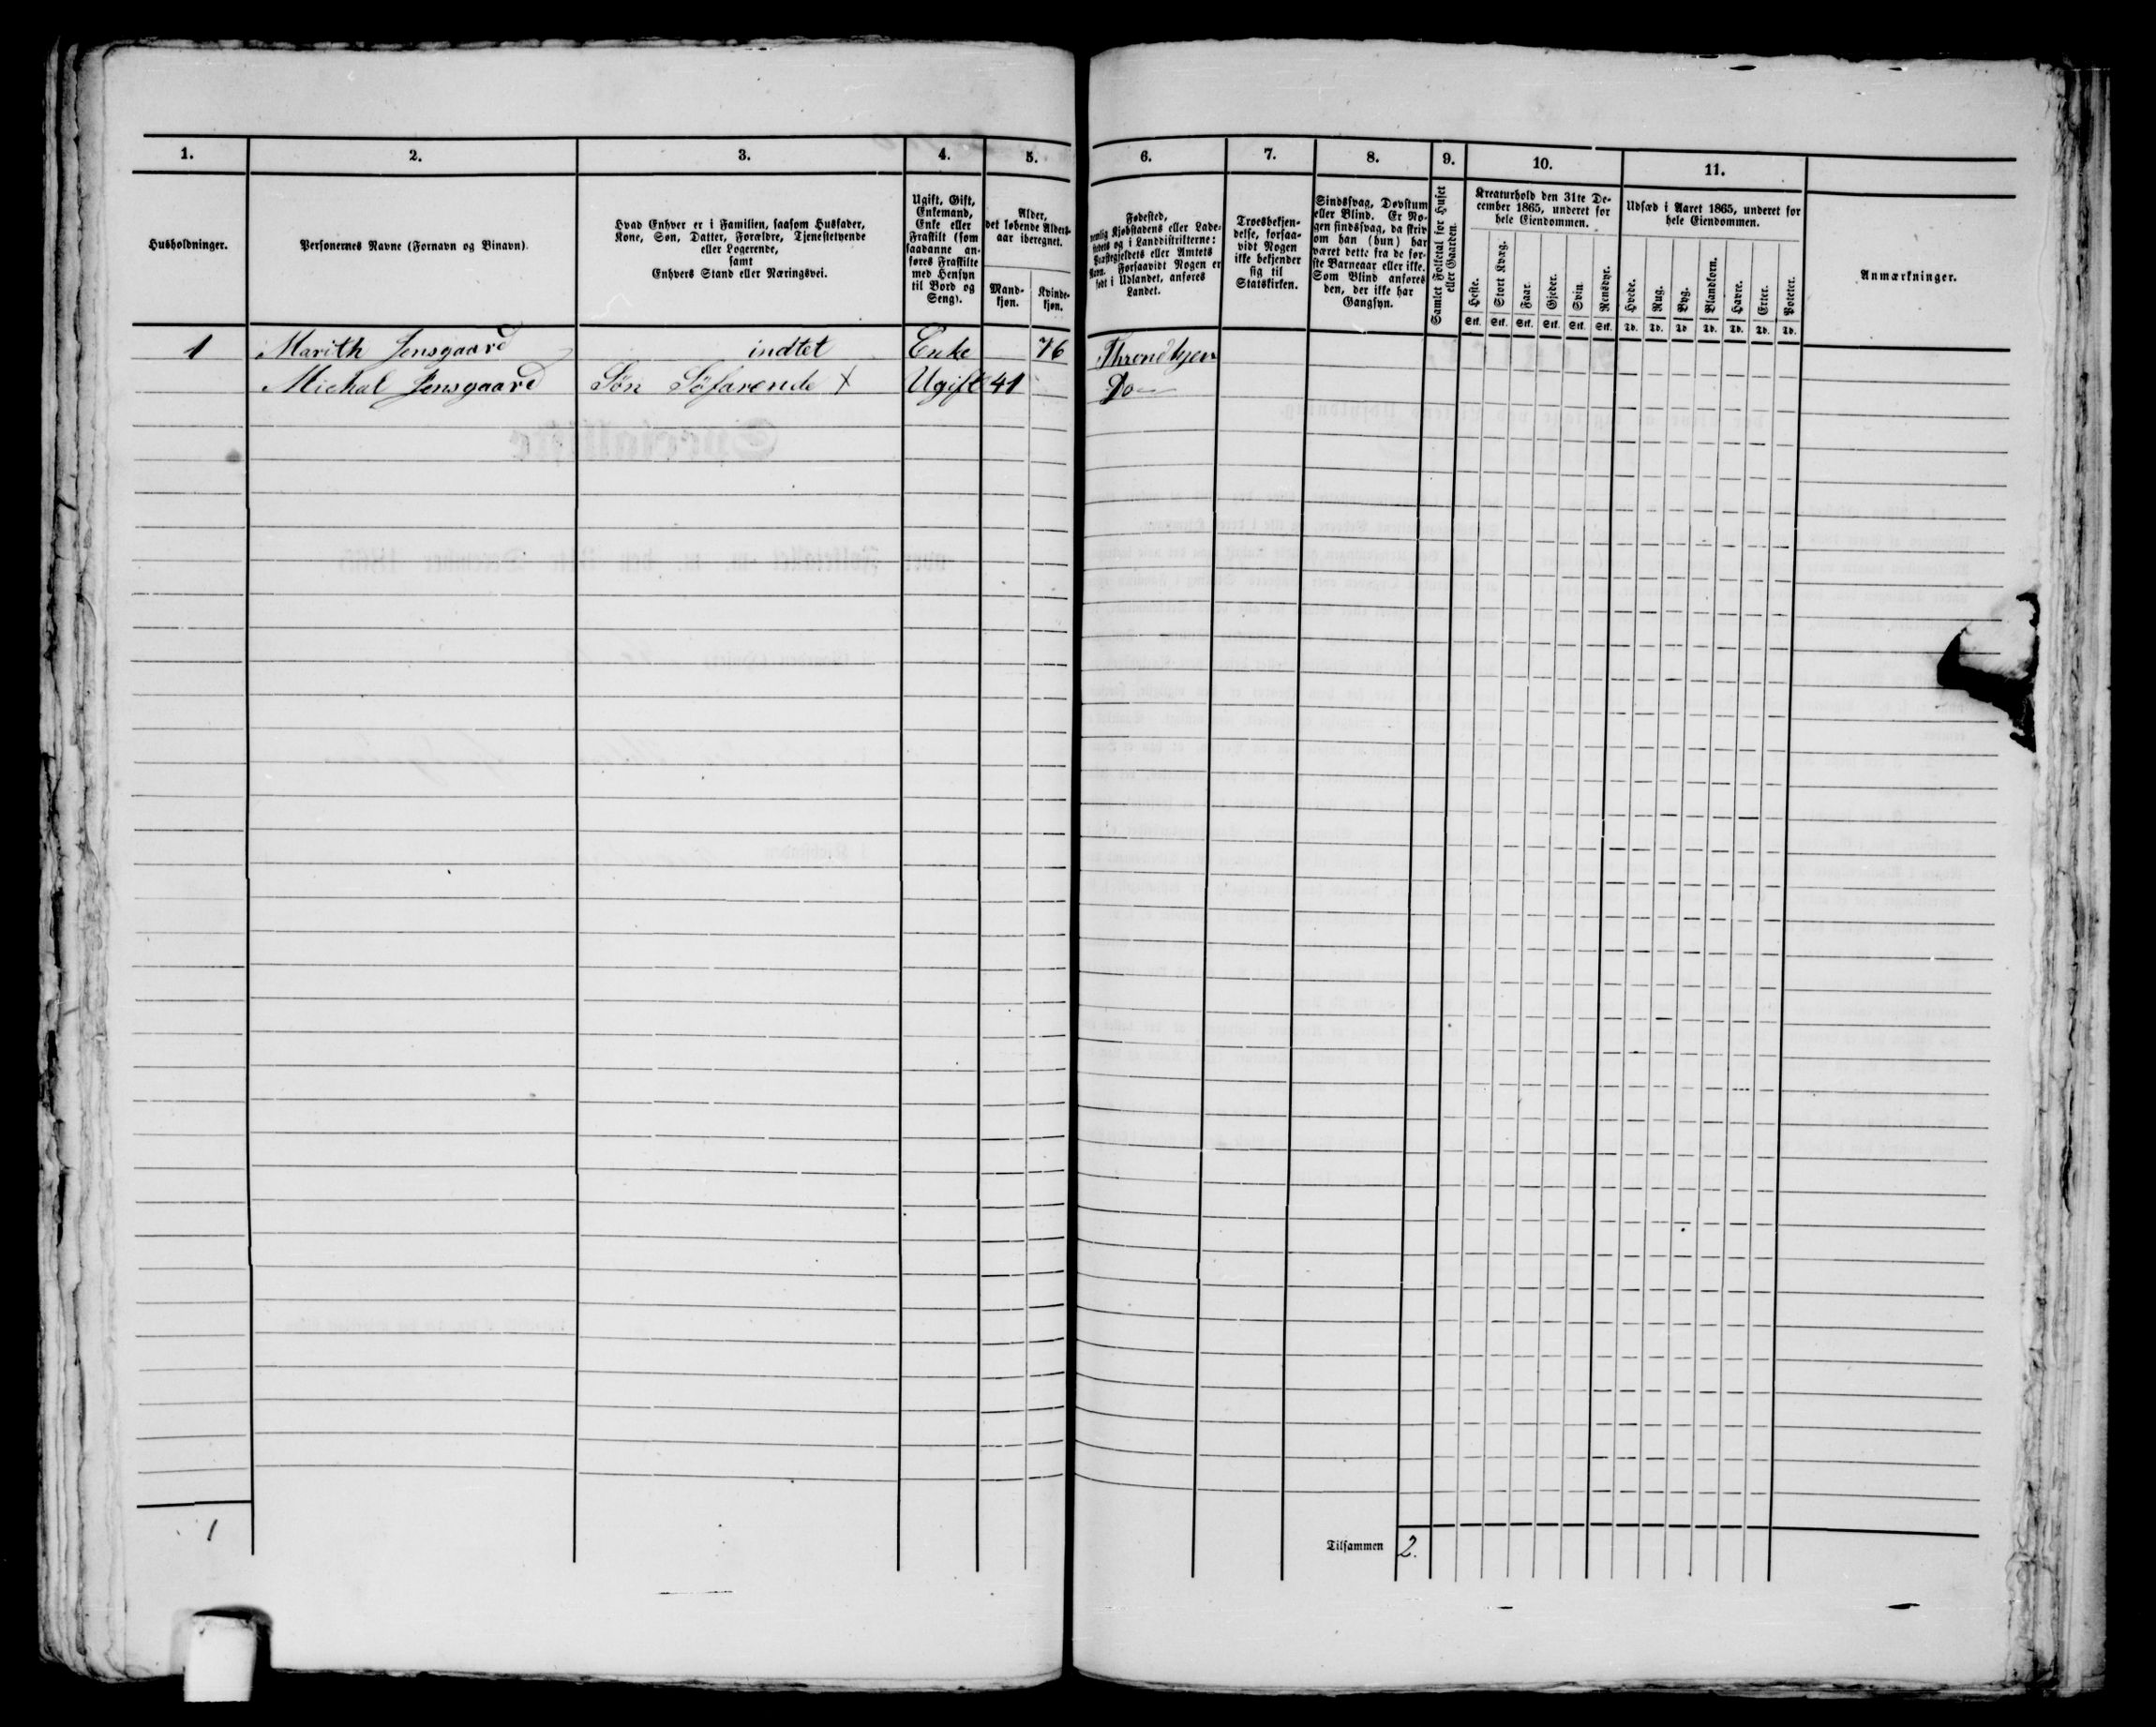 1.
2.
3.
4.
5.
6.
7.
8.
9.
10.
11.
Husholdninger.
Personernes Navne (Fornavn og Binavn).
Hvad Enhver er i Familien, saasom Husfader,
Kone, Søn, Datter, Forældre, Tjenestetyende
eller Logerende,
samt
Enhvers Stand eller Næringsvei.
Ugift, Gift,
Enkemand,
Enke eller
Fraskilt (som
saadanne an-
føres Fraskilte
med Hensyn
til Bord og
Seng).
Alder,
det løbende Alders-
aar iberegnet.
Mand-
kjøn.
Kvinde-
kjøn.
Fødested,
nemlig Kjøbstadens eller Lade-
stedets og i Landdistrikterne:
Præstegjeldets eller Amtets
Navn. Forsaavidt Nogen er
født i Udlandet, anføres
Landet.
Troesbekjen-
delse, forsaa-
vidt Nogen
ikke bekjender
sig til
Statskirken.
Sindssvag, Døvstum
eller Blind. Er No-
gen sindssvag, da skriv
om han (hun) har
været dette fra de før-
ste Barneaar eller ikke.
Som Blind anføres
den, der ikke har
Gangsyn.
Samlet Folketal for Huset
eller Gaarden.
Kreaturhold den 31te De-
cember 1865, underet for
hele Eiendommen.
Heste.
Stort Kvæg.
Faar.
Gjeder.
Svin.
Rensdyr.
Stk. Stk. Stk. Stk. Stk. Stk.
Udsæd i Aaret 1865, underet for
hele Eiendommen.
Hvede.
Rug.
Byg.
Blandkorn.
Havre.
Erter.
Poteter.
Td. Td. Td Td. Td. Td. Td.
Anmærkninger.
1 Marith Jensgaard indtet Enke 76 Throndhjem
Michal Jensgaard Søn Söfarende X Ugift 41 Do
1
Tilsammen 2.